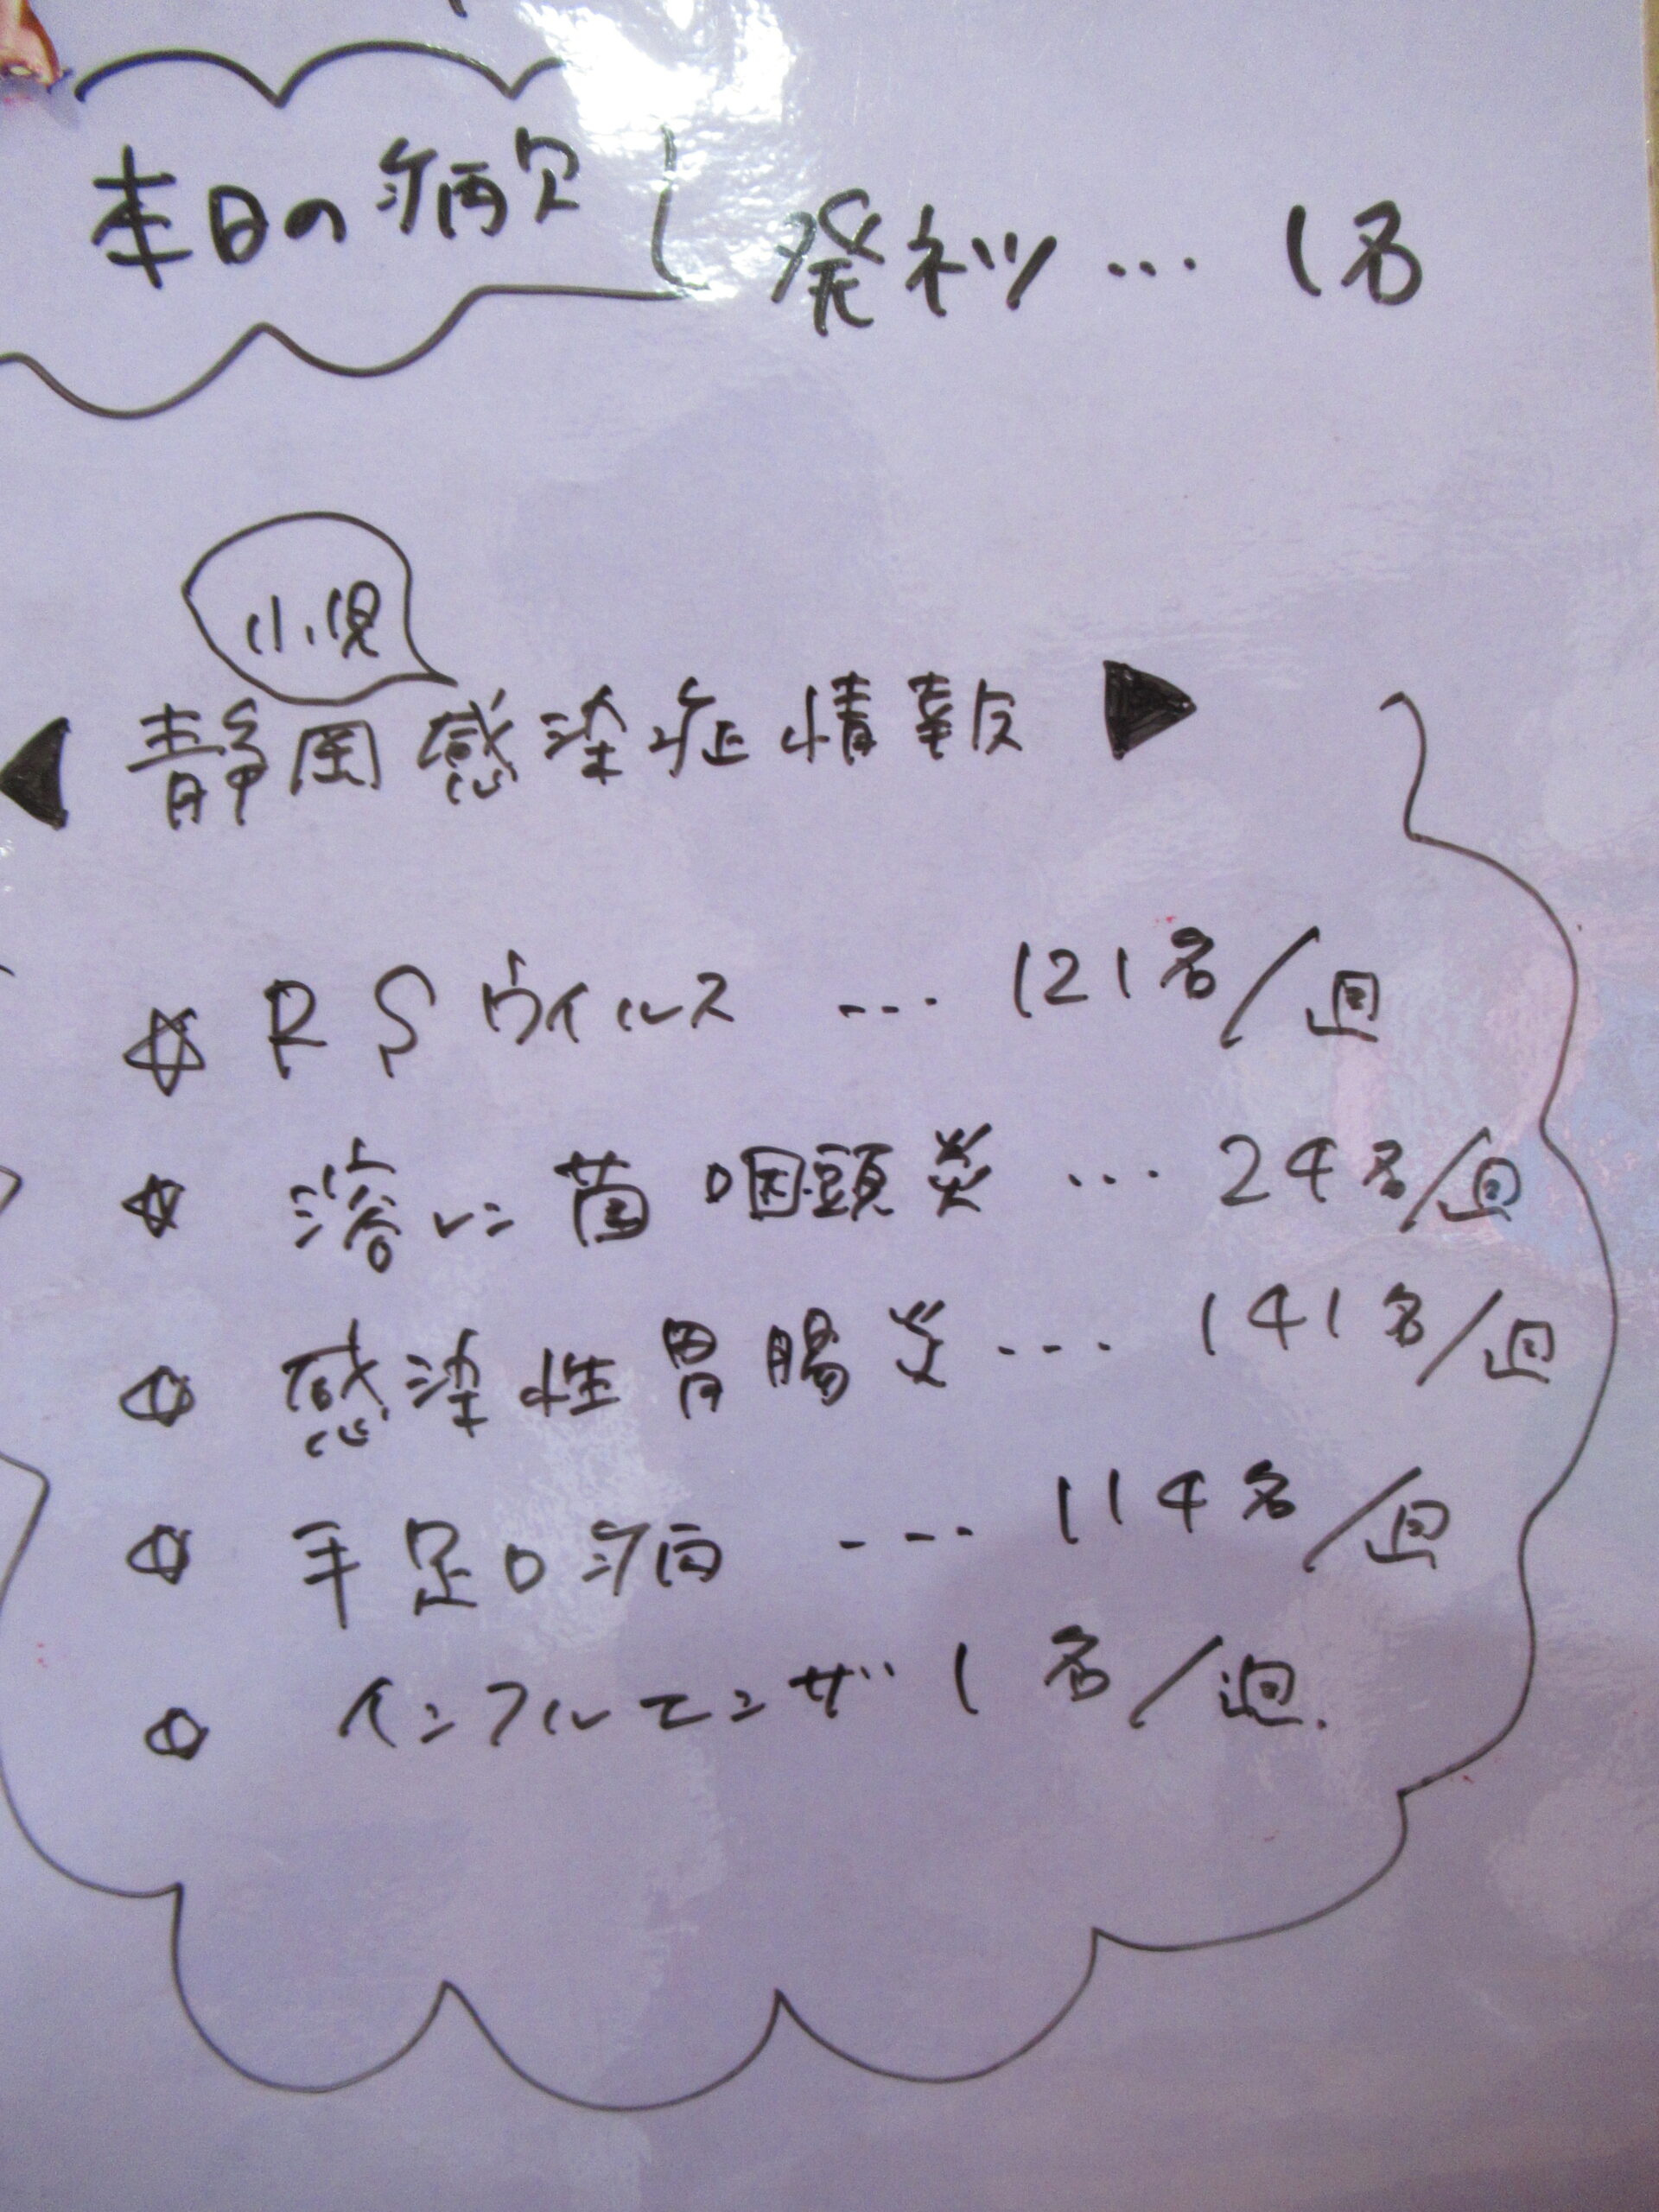 本日の病欠
発ネツ… 1名
小児
静岡感染症情報
☆ RSウイルス … 121名/週
☆ 溶レン菌咽頭炎 … 24名/週
☆ 感染性胃腸炎 … 141名/週
☆ 手足口病 … 114名/週
☆ インフルエンザ 1名/週.